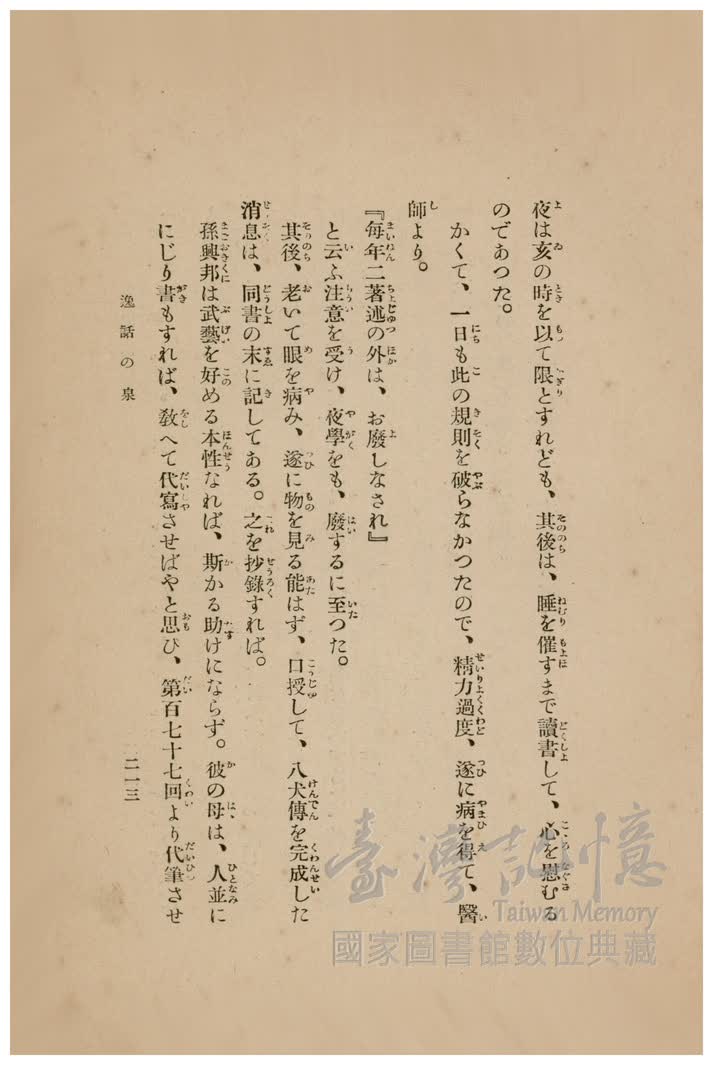 夜は亥の時を以て限とすれども、其後は、睡を催すまで讀書して、心を慰むる
のであつた。
かくて、一日も此の規則を破らなかつたので、精力過度、遂に病を得て、醫
師より。
『每年二著述の外は、お廢しなされ』
と云ふ注意を受け、夜學をも、廢するに至つた。
其後、老いて眼を病み、遂に物を見る能はず、口授して、八犬傳を完成した
消息は、同書の末に記してある。之を抄錄すれば。
孫興邦は武藝を好める本性なれば、斯かる助けにならず。彼の母は、人並に
にじり書もすれば、敎へて代寫させばやと思ひ、第百七十七回より代筆させ
逸話の泉
二一三
臺灣記憶
Taiwan Memory
國家圖書館數位典藏